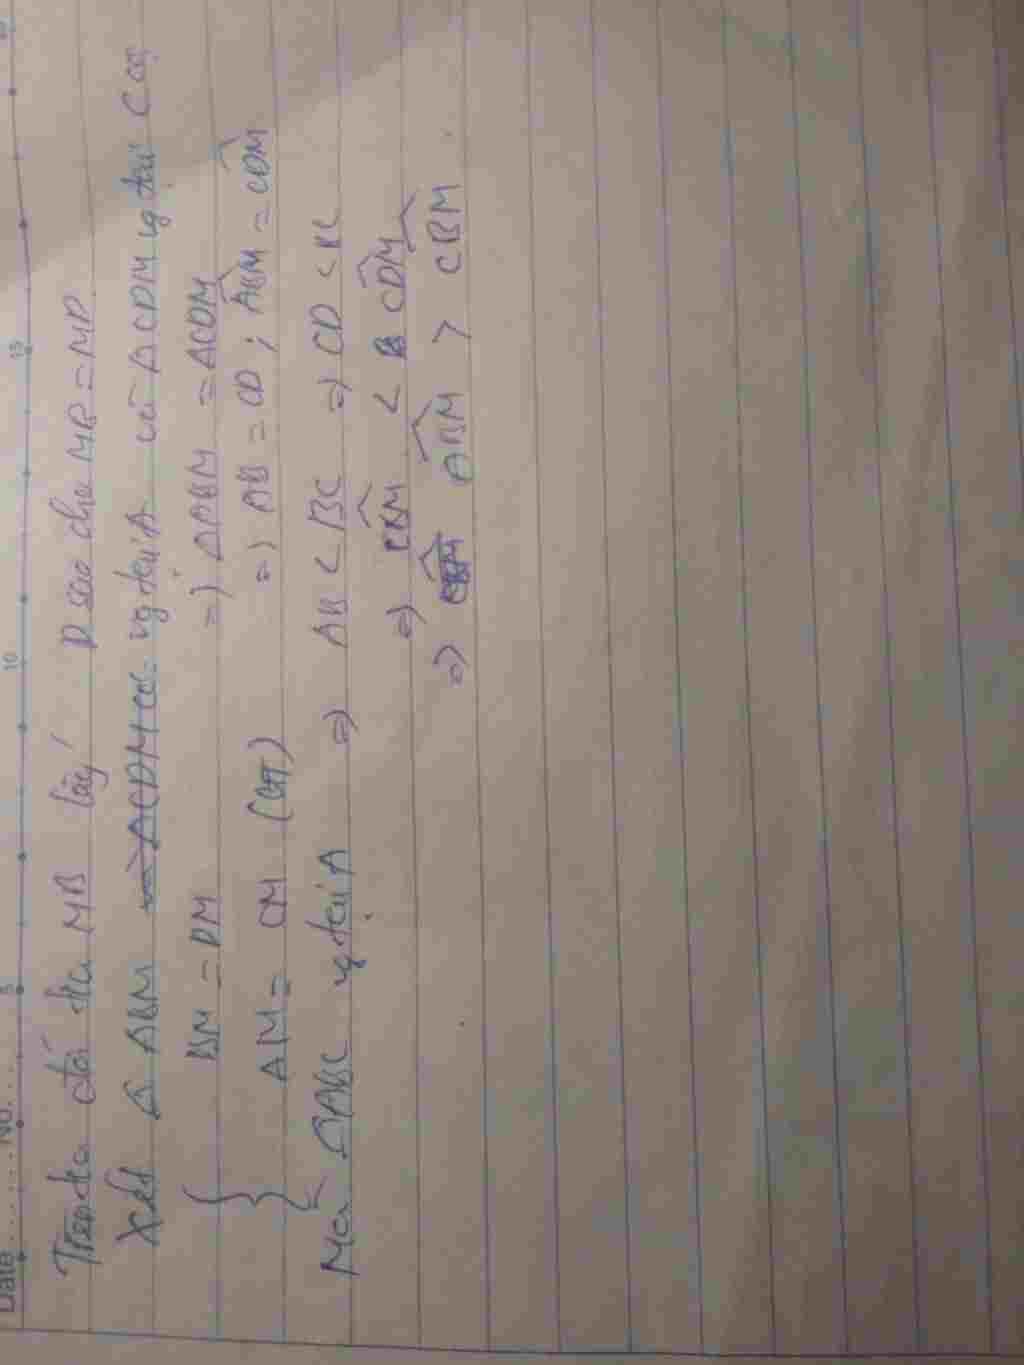 Date ......... No. ....
5 10 15
Trên tia đối tia MB lấy D sao cho MB = MD.
Xét Δ ABM và ΔCDM có vg tại A và ΔCDM vg tại C có
BM = DM => ΔABM = ΔCDM
AM = CM (GT) => AB = CD ; ABM = CDM
Mà ΔABC vg tại A => AB < BC => CD < BC
=> CBM < B CDM
=> CBM ABM > CBM